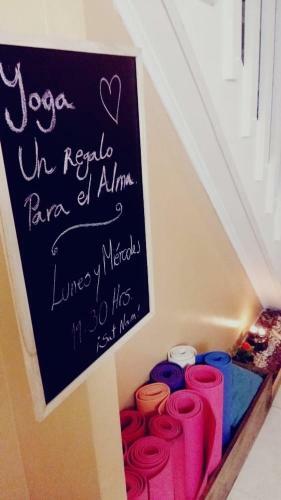 Yoga
Un Regalo
Para el Alma.
Lunes y Mércoles
19:30 Hrs.
¡Sat Nam!